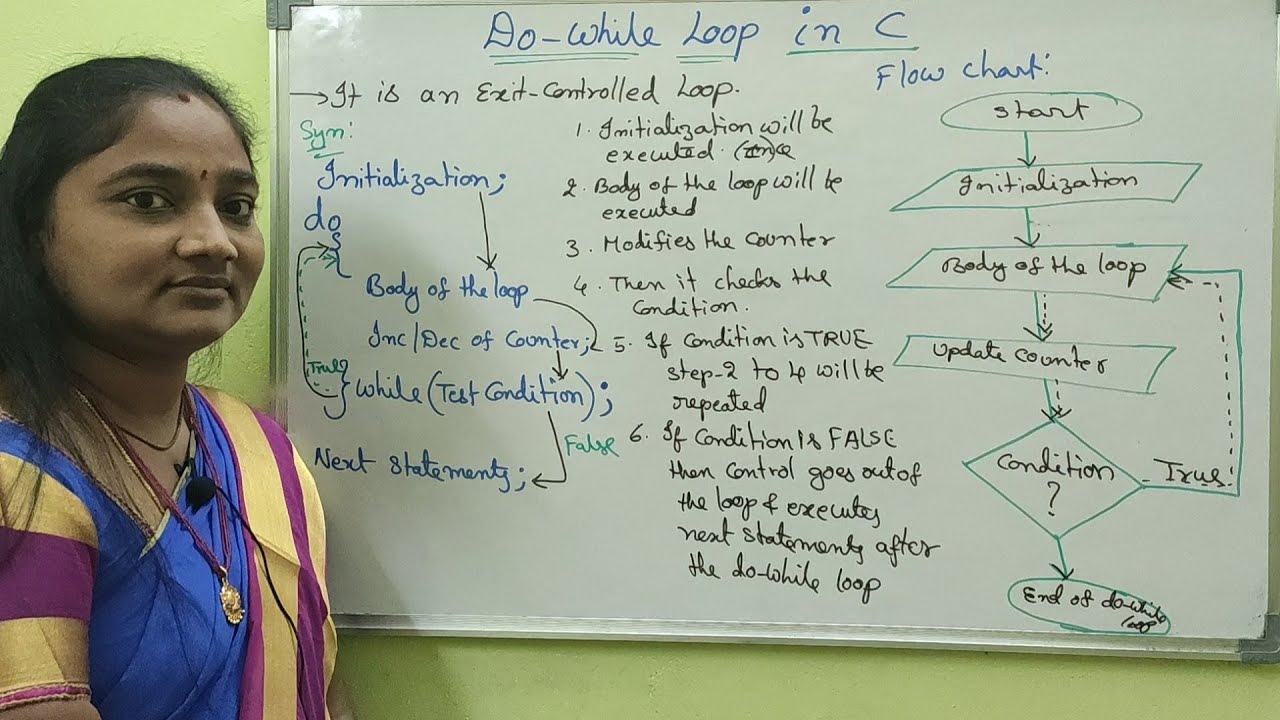 Do-While Loop in C
→ It is an Exit-Controlled Loop.
Syn:
Initialization;
do
{
Body of the loop
Inc/Dec of Counter;
True
} while (Test Condition);
False
Next Statements;
1. Initialization will be
executed.
2. Body of the loop will be
executed
3. Modifies the Counter
4. Then it checks the
Condition.
5. If Condition is TRUE
step-2 to 4 will be
repeated
6. If Condition is FALSE
then Control goes out of
the loop & executes
next statements after
the do-while loop
Flow chart:
Start
Initialization
Body of the loop
Update Counter
Condition
?
True
End of do-while
loop